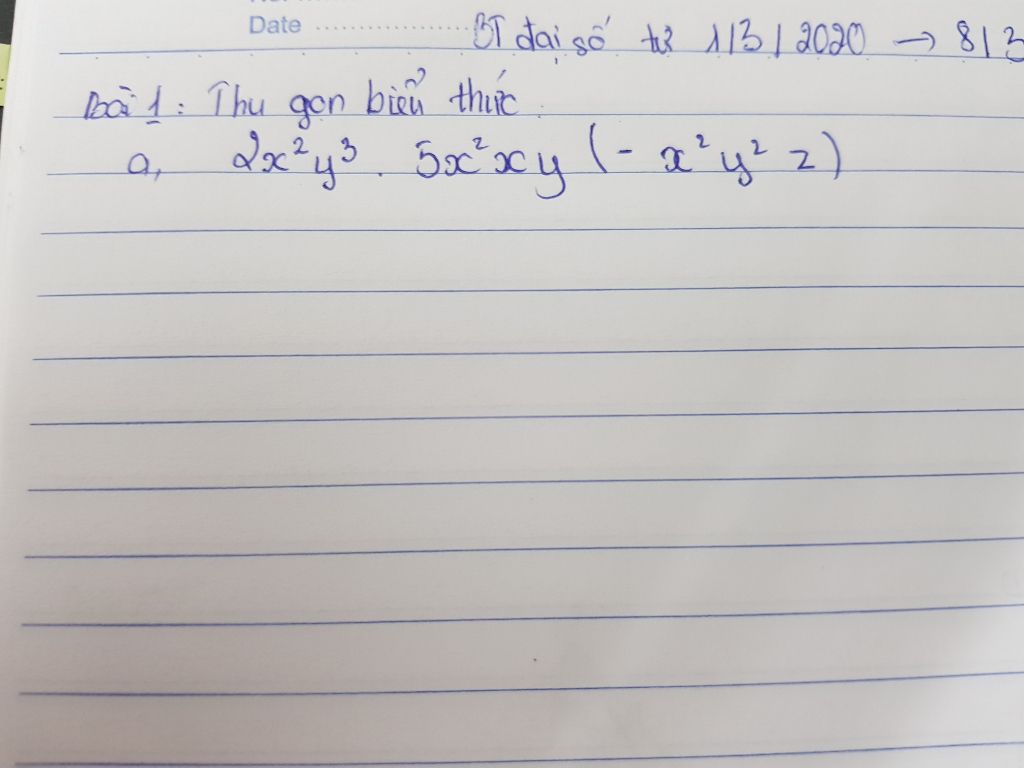 Date ....................... BT đại số từ 1/3/2020 → 8/3
Bài 1: Thu gọn biểu thức.
a, 2x²y³ . 5x²xy (- x²y² z)